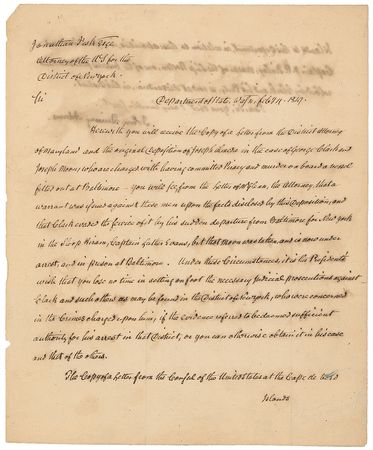 Jonathan Fisk Esqr.
Attorney of the US for the
District of New York.
Sir
Department of State, 1819.
Herewith you will receive the Copy of a Letter from the District Attorney
of Maryland and the original Deposition of Joseph in the case of George Clark and
Joseph who are charged with having committed Piracy and murder on board a vessel
fitted out at Baltimore – You will see, from the Letter of Mr. Glenn, the Attorney, that a
warrant was issued against these men upon the facts disclosed by this Deposition, and
that Clark evaded the service of it by his sudden departure from Baltimore for New York
in the Sloop Hiram, Captain Luther Evans, but that was taken and is now under
arrest, and in prison at Baltimore. Under these Circumstances, it is the President's
wish that you lose no time in setting on foot the necessary Judicial prosecutions against
Clark and such others as may be found in the District of New York, who were concerned
in the Crimes charged upon him, if the evidence referred to be deemed sufficient
authority for his arrest in that District, or you can otherwise obtain it in his case
and that of the others.
The Copy of a Letter from the Consul of the United States at the Cape de Verd
Islands